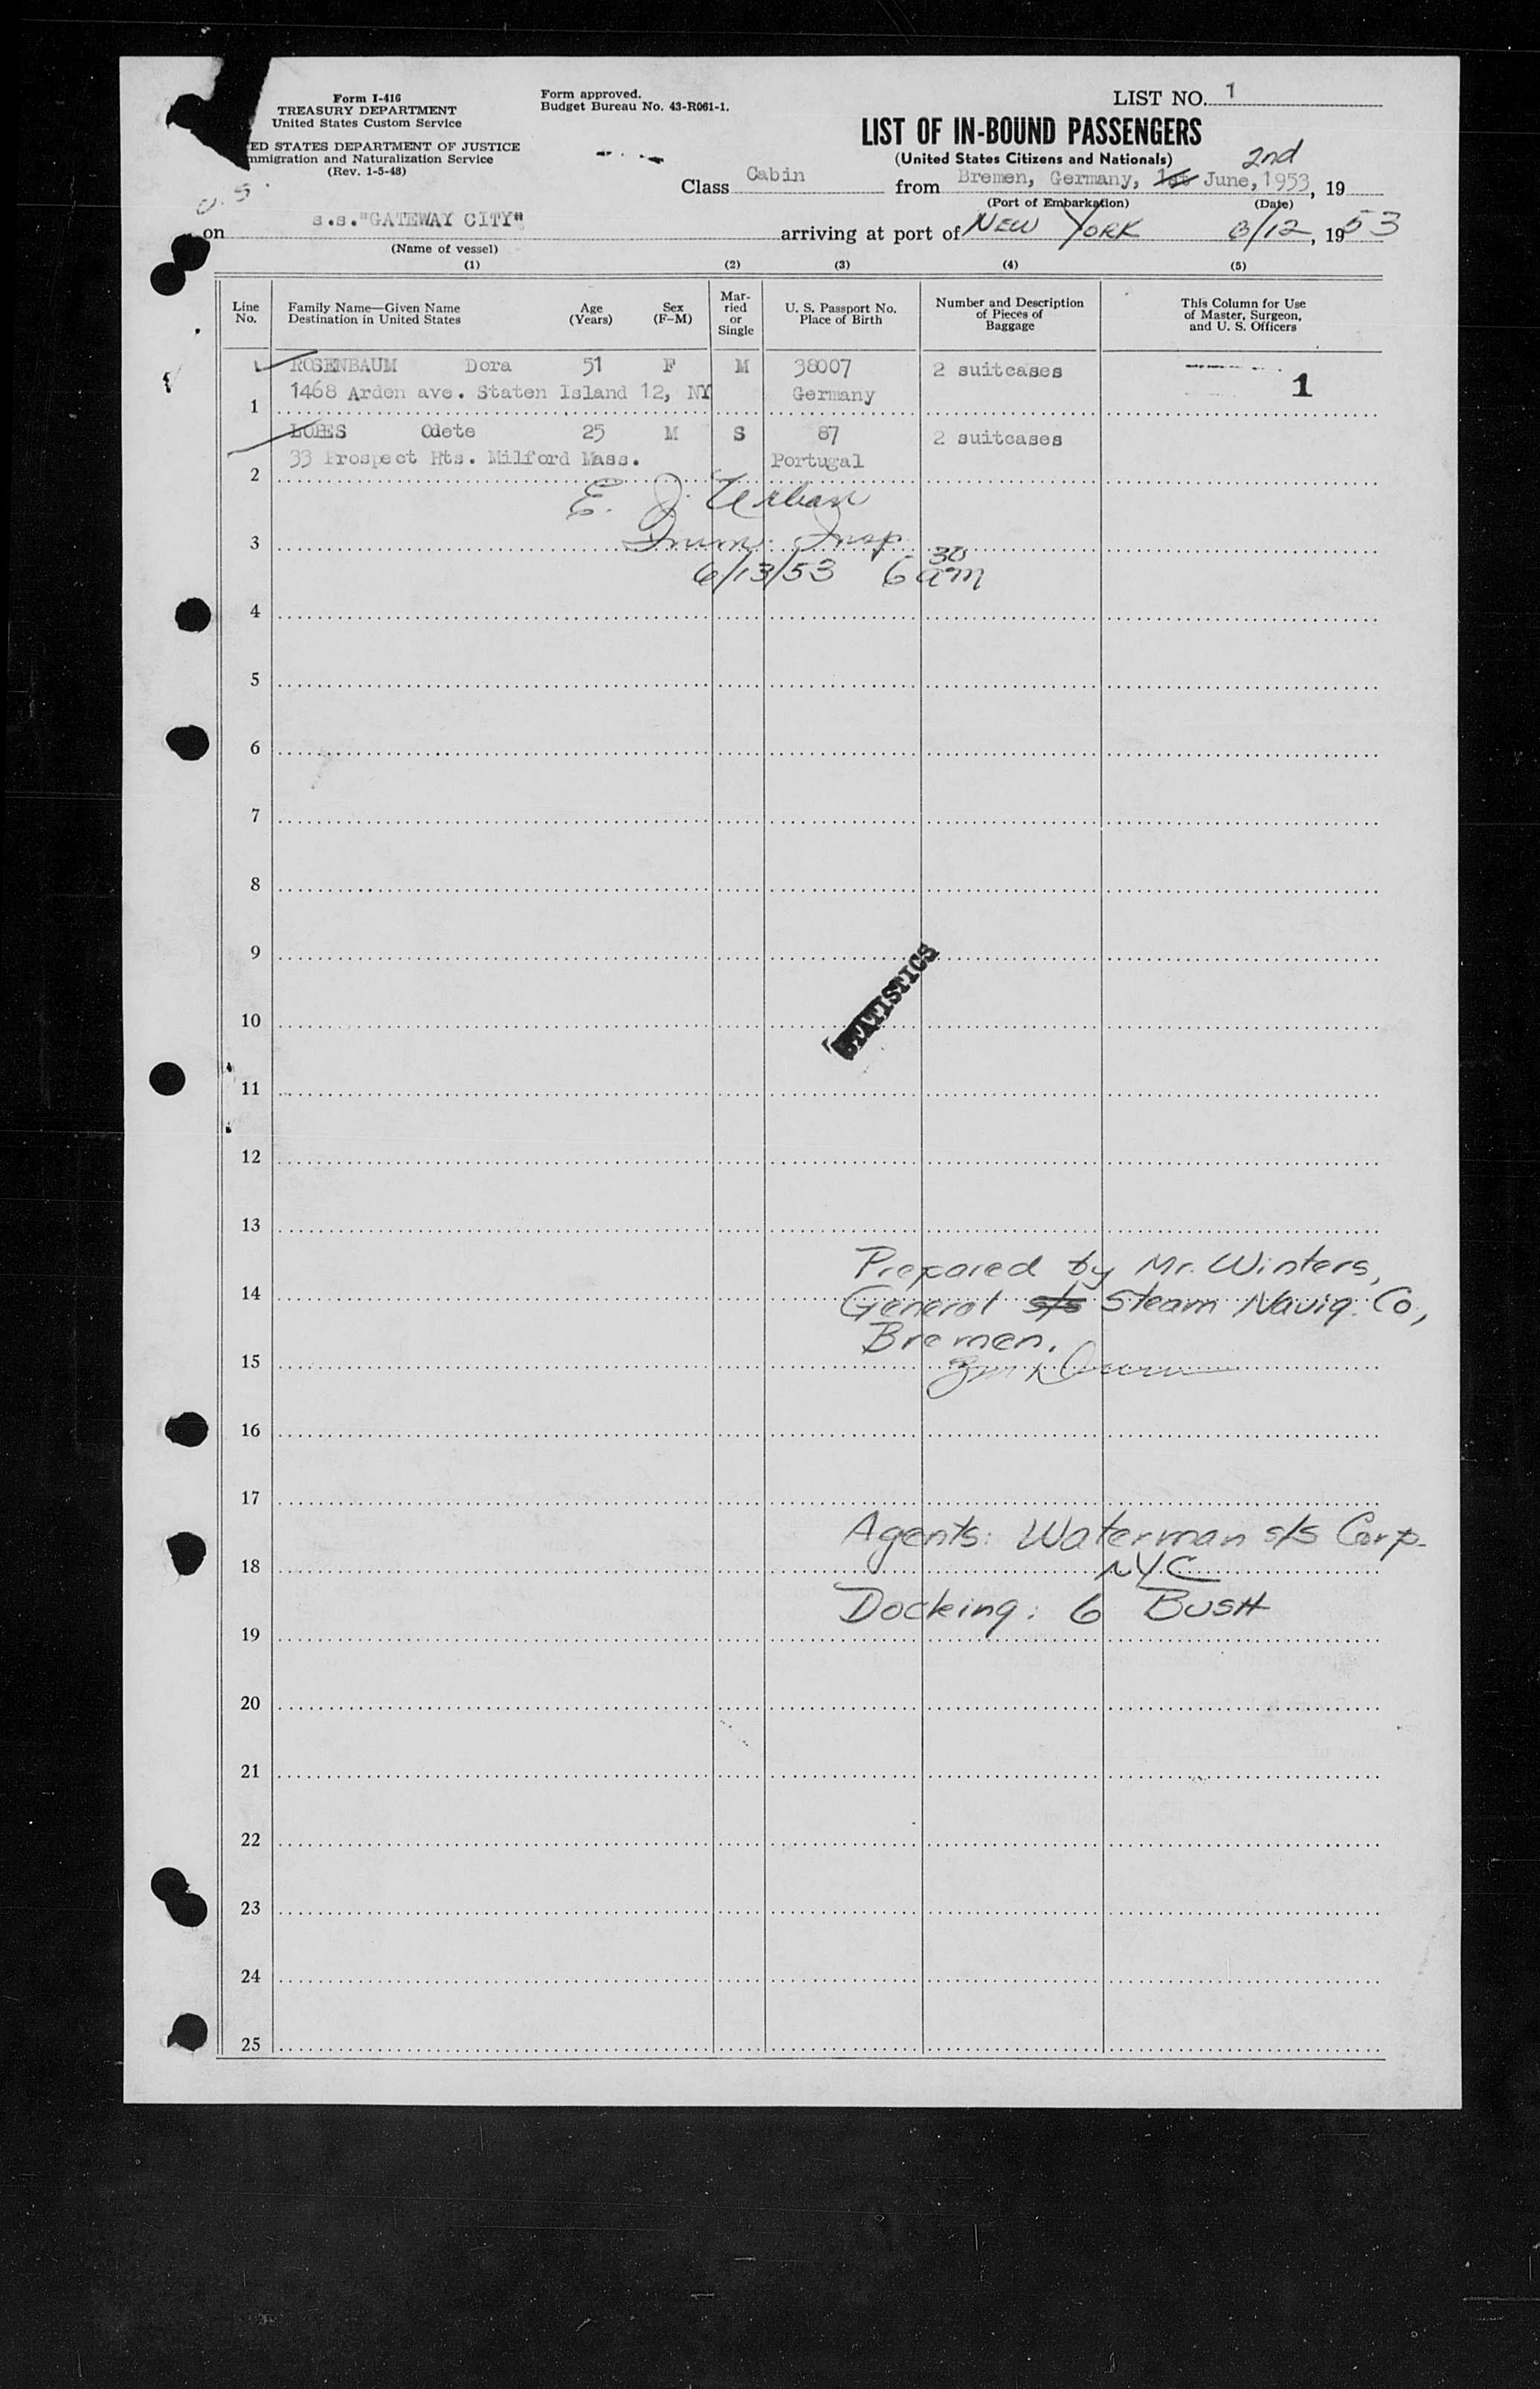 LIST NO. 1
Form I-416
TREASURY DEPARTMENT
United States Custom Service
ED STATES DEPARTMENT OF JUSTICE
mmigration and Naturalization Service
(Rev. 1-5-48)
Form approved.
Budget Bureau No. 43-R061-1.
LIST OF IN-BOUND PASSENGERS
(United States Citizens and Nationals)
2nd
Class Cabin from Bremen, Germany, 1st June, 1953, 19
(Port of Embarkation) (Date)
on s.s."GATEWAY CITY" arriving at port of NEW YORK 6/12, 1953
(Name of vessel)
(1) (2) (3) (4) (5)
Line No. Family Name—Given Name Destination in United States Age (Years) Sex (F–M) Mar-ried or Single U. S. Passport No. Place of Birth Number and Description of Pieces of Baggage This Column for Use of Master, Surgeon, and U. S. Officers
ROSENBAUM Dora 51 F M 38007 2 suitcases 1
1 1468 Arden ave. Staten Island 12, NY Germany
LOPES Odete 25 M S 87 2 suitcases
2 33 Prospect Hts. Milford Mass. Portugal
E. J. Urban
3 Imm. Insp.
6/13/53 6 30 am
4
5
6
7
8
9
STATISTICS
10
11
12
13
Prepared by Mr. Winters,
14 General s/s Steam Navig. Co,
Bremen.
15
16
17
Agents: Waterman s/s Corp.
18 NYC
Docking: 6 BUSH
19
20
21
22
23
24
25